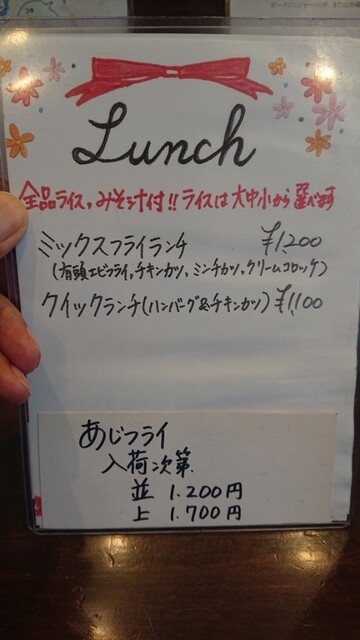 Lunch
全品ライス、みそ汁付!!ライスは大中小から選べます
ミックスフライランチ ¥1,200
(有頭エビフライ,チキンカツ,ミンチカツ,クリームコロッケ)
クイックランチ(ハンバーグ&チキンカツ) ¥1,100
あじフライ
入荷次第.
並 1.200円
上 1.700円